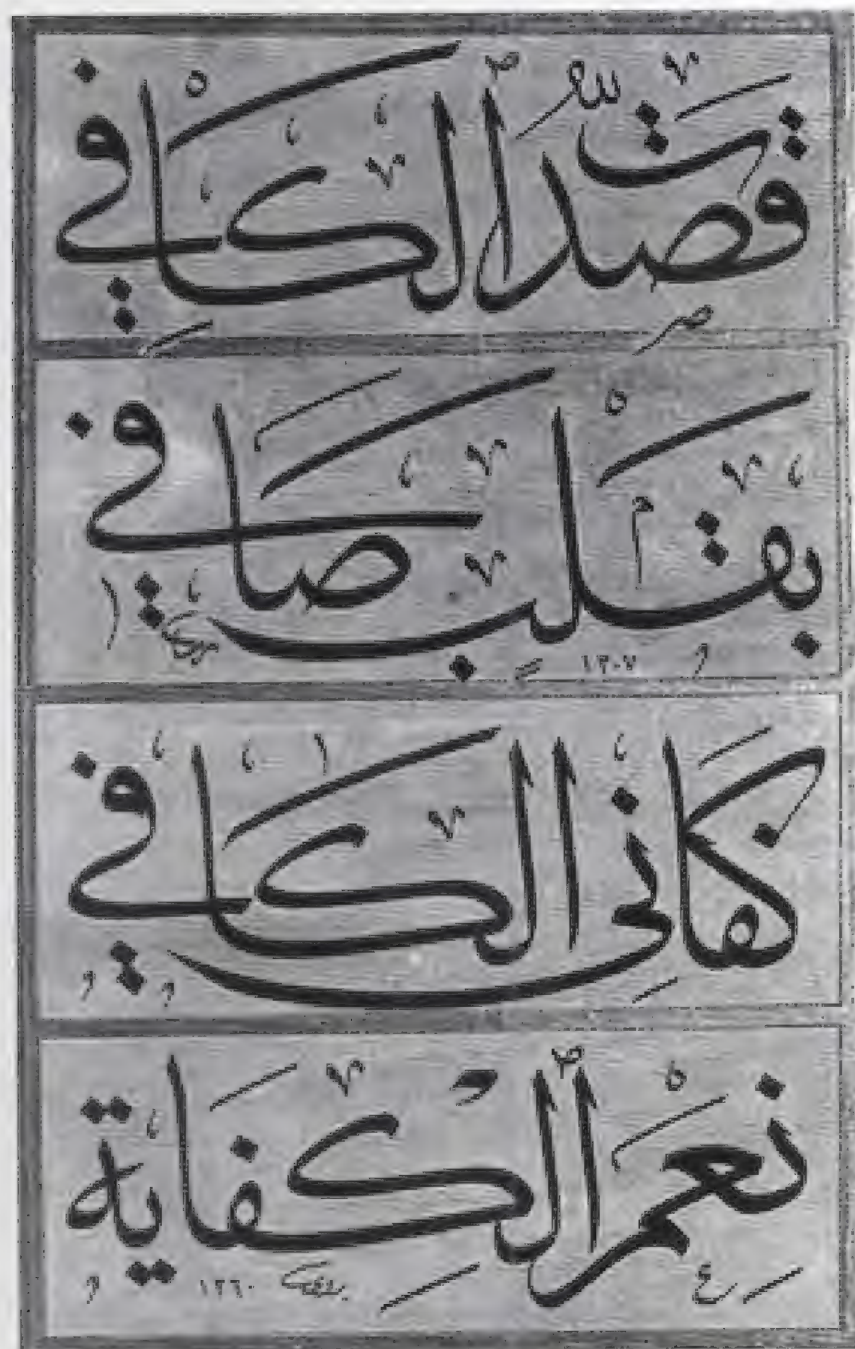 قصدت الكافي
بقلب صافي
كفاني الكافي
نعم الكفاية
١٢٦٠